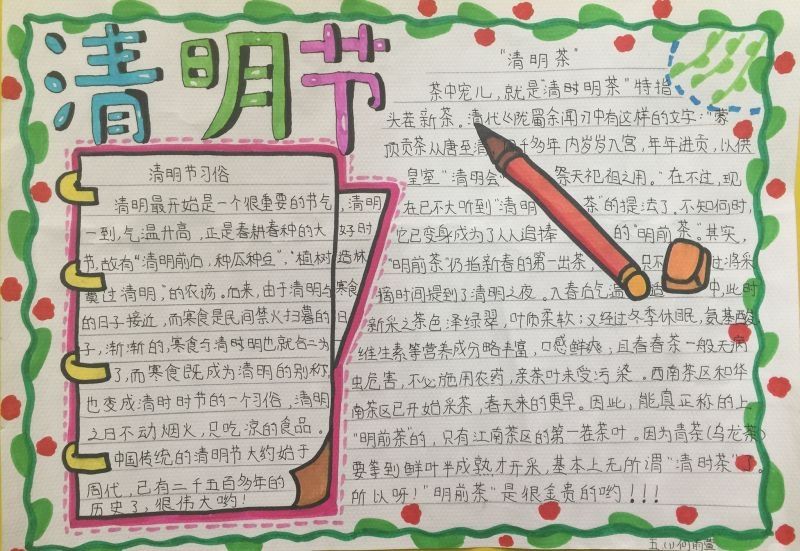 清明节
清明节习俗
清明最开始是一个很重要的节气，清明
一到，气温升高，正是春耕春种的大好时
节，故有“清明前后，种瓜种豆”，“植树造林
莫过清明”的农谚。后来，由于清明与寒食
的日子接近，而寒食是民间禁火扫墓的日
子，渐渐的，寒食与清明时明也就合二为
了，而寒食既成为清明的别称，
也变成清时时节的一个习俗，清明
之日不动烟火，只吃凉的食品。
中国传统的清明节大约始于
周代，已有二千五百多年的
历史了，很伟大哟！
“清明茶”
茶中宠儿，就是“清时明茶”特指
头茬新茶。清代《陇蜀余闻》中有这样的文字：“蒙
顶贡茶从唐至清，千多年内岁岁入宫，年年进贡，以供
皇室“清明会”祭天祀祖之用。”在不过，现
在已不大听到“清明茶”的提法了。不知何时，
它已变身成为了人追捧的“明前茶”。其实，
“明前茶”仍指新春的第一出茶，只不过将采
摘时间提到了清明之夜。入春后气温中，此时
新采之茶色泽绿翠，叶质柔软；又经过冬季休眠，氨基酸
维生素等营养成分略丰富，口感鲜爽，且春春茶一般无病
虫危害，不必施用农药，亲茶叶未受污染。西南茶区和华
南茶区已开始采茶，春天来的更早。因此，能真正称的上
“明前茶”的，只有江南茶区的第一茬茶叶。因为青茶（乌龙茶）
要等到鲜叶半成熟才开采，基本上无所谓“清时茶”了。
所以呀！“明前茶”是很金贵的哟！！！
五、(1)何雨萱